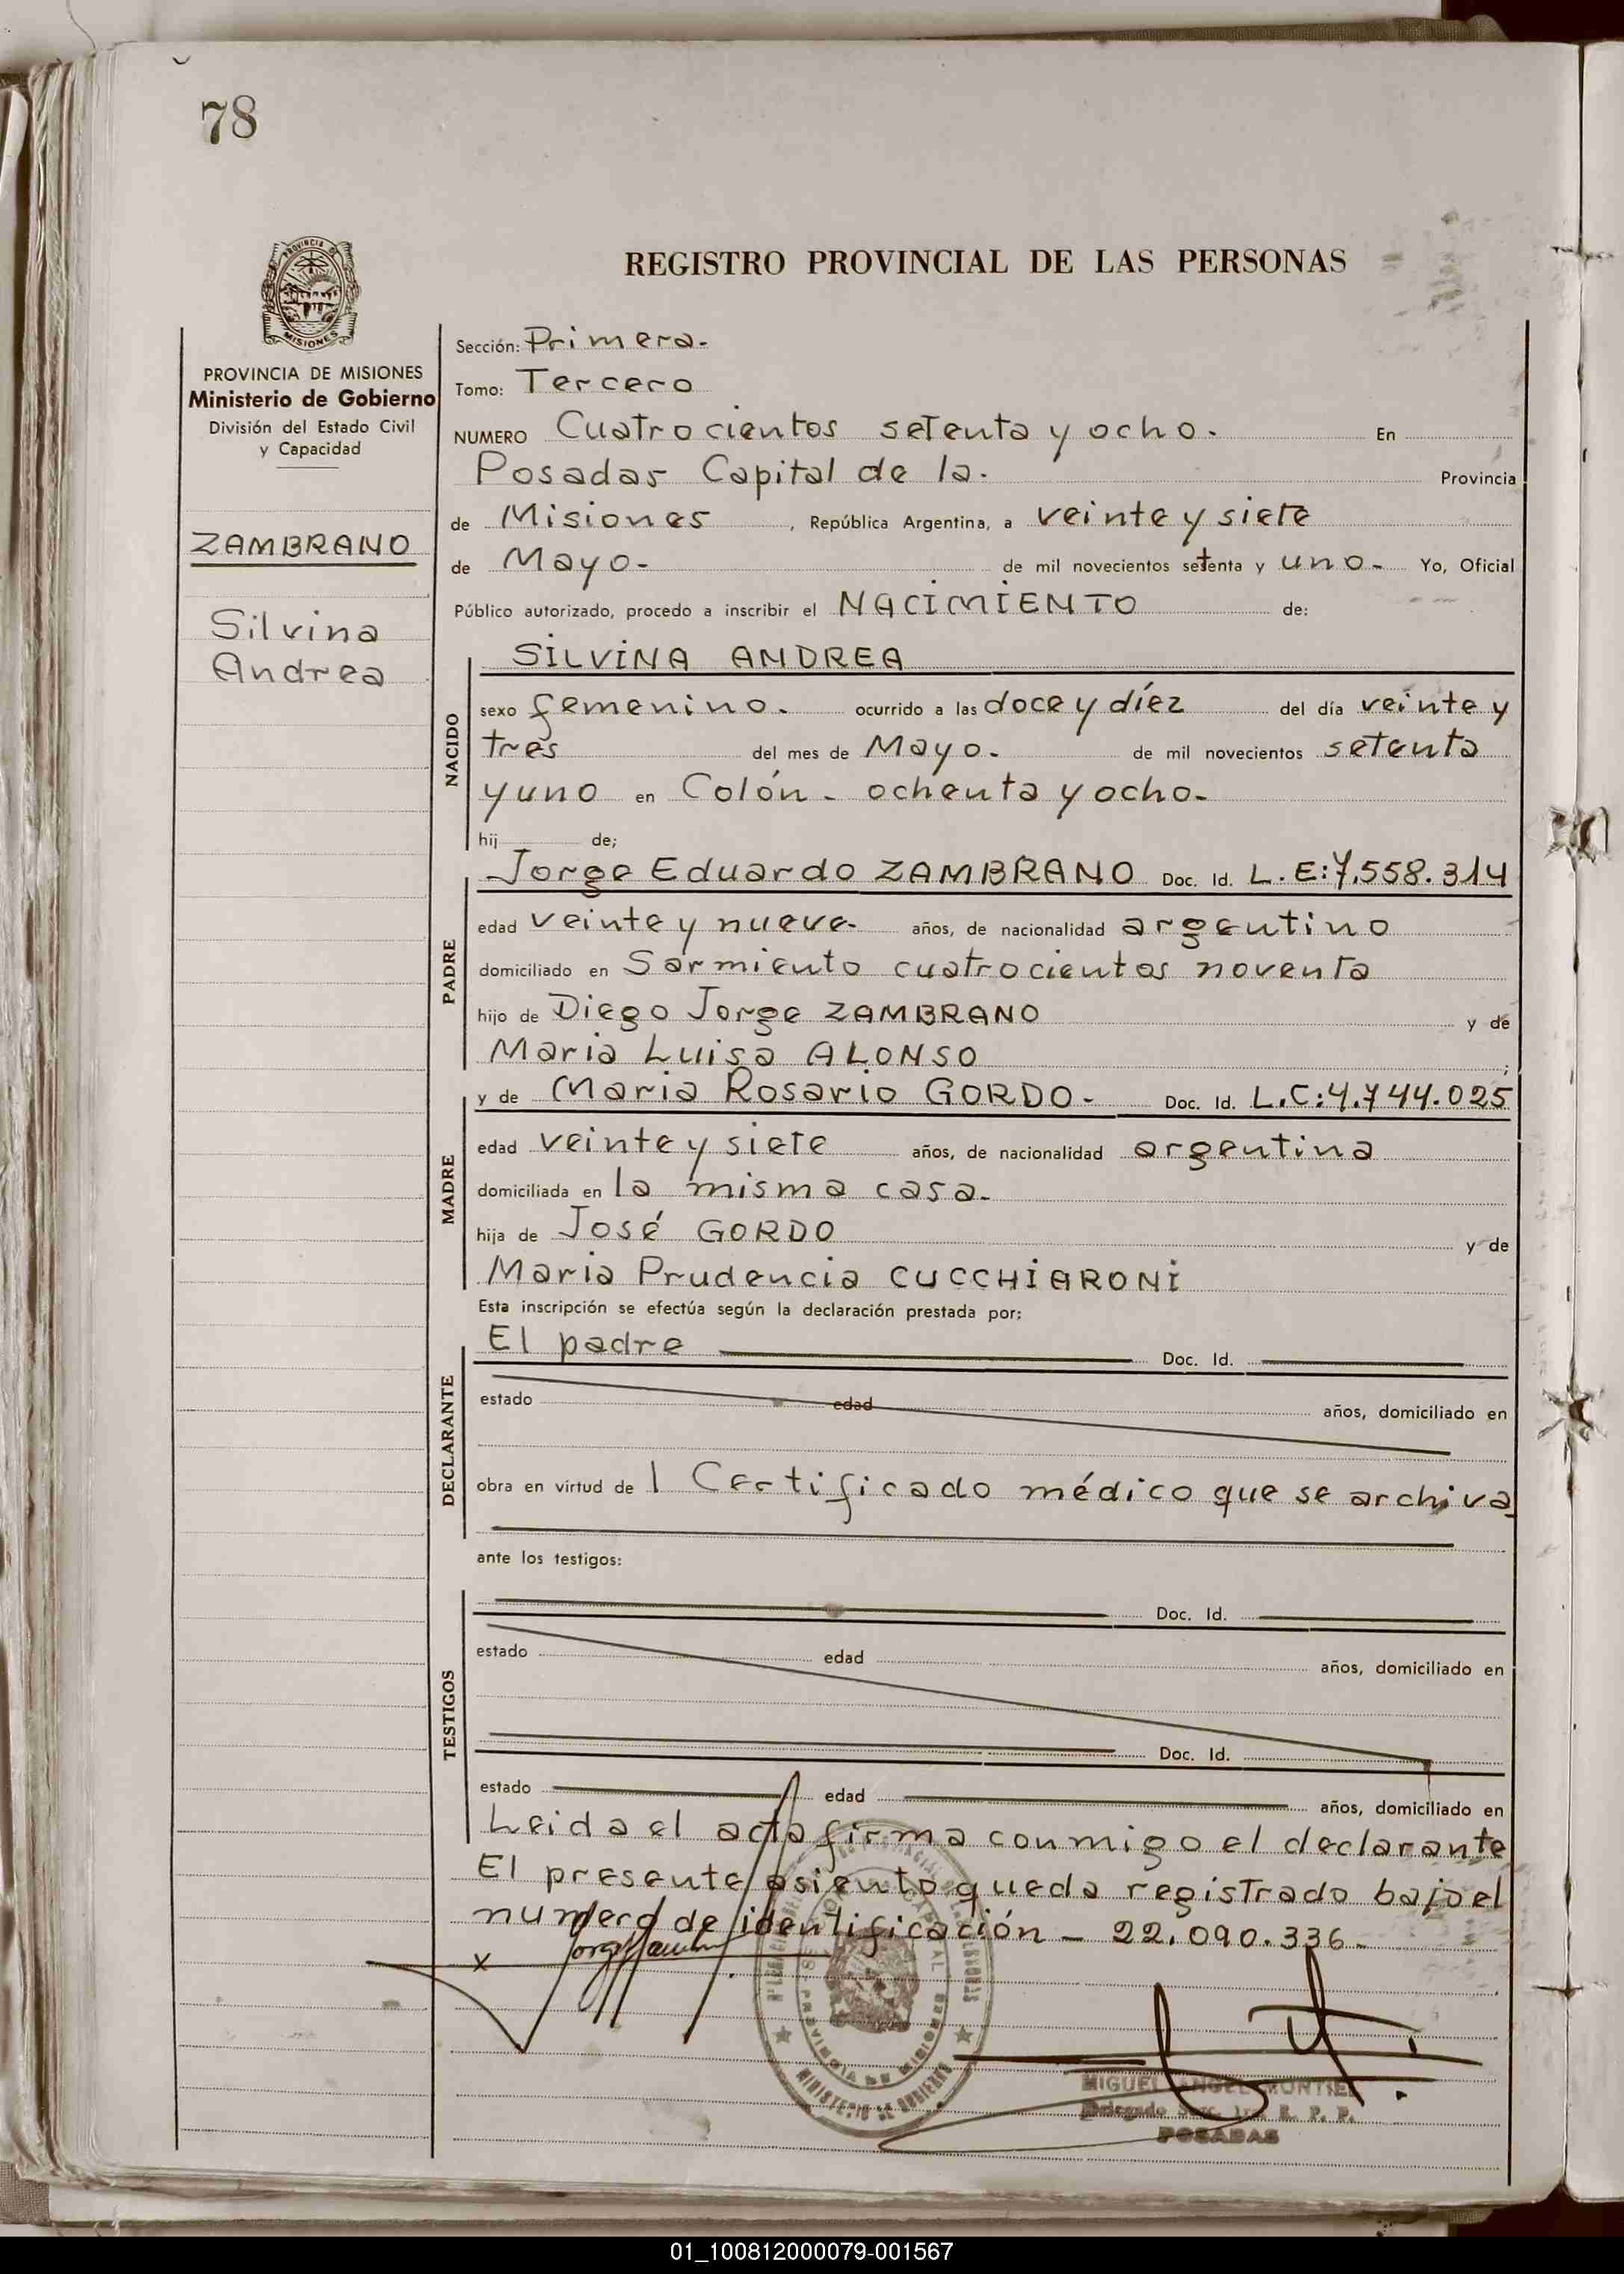 78
REGISTRO PROVINCIAL DE LAS PERSONAS
PROVINCIA DE
MISIONES
PROVINCIA DE MISIONES
Ministerio de Gobierno
División del Estado Civil
y Capacidad
ZAMBRANO
Silvina
Andrea
Sección: Primera.
Tomo: Tercero
NUMERO Cuatrocientos setenta y ocho. En
Posadas Capital de la. Provincia
de Misiones, República Argentina, a veinte y siete
de Mayo- de mil novecientos setenta y uno- Yo, Oficial
Público autorizado, procedo a inscribir el NACIMIENTO de:
NACIDO
SILVINA ANDREA
sexo femenino. ocurrido a las doce y díez del día veinte y
tres del mes de Mayo. de mil novecientos setenta
y uno en Colón - ochenta y ocho-
hij de;
PADRE
Jorge Eduardo ZAMBRANO Doc. Id. L.E:7.558.314
edad veinte y nueve- años, de nacionalidad argentino
domiciliado en Sarmiento cuatrocientos noventa
hijo de Diego Jorge ZAMBRANO y de
Maria Luisa ALONSO;
MADRE
y de Maria Rosario GORDO- Doc. Id. L.C:4.744.025
edad veinte y siete años, de nacionalidad argentina
domiciliada en la misma casa-
hija de José GORDO y de
Maria Prudencia CUCCHIARONI
Esta inscripción se efectúa según la declaración prestada por;
DECLARANTE
El padre Doc. Id.
estado edad años, domiciliado en
obra en virtud de 1 Certificado médico que se archiva
ante los testigos:
TESTIGOS
Doc. Id.
estado edad años, domiciliado en
Doc. Id.
estado edad años, domiciliado en
Leida el acta firma conmigo el declarante
El presente asiento queda registrado bajo el
numero de identificación - 22.090.336-
x
PROVINCIA DE MISIONES
MINISTERIO DE GOBIERNO
MIGUEL ANGEL MONTIEL
Delegado Secc. 1ra. R. P. P.
POSADAS
01_100812000079-001567